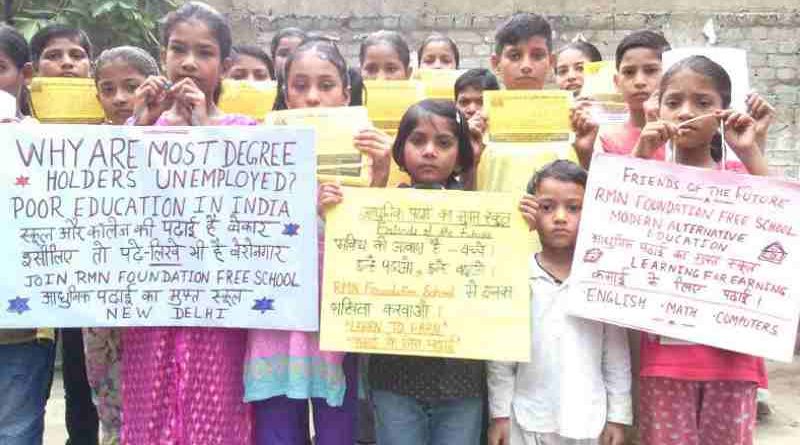 WHY ARE MOST DEGREE
HOLDERS UNEMPLOYED?
POOR EDUCATION IN INDIA
स्कूल और कॉलेज की पढ़ाई है बेकार
इसीलिए तो पढ़े-लिखे भी हैं बेरोजगार
JOIN RMN FOUNDATION FREE SCHOOL
आधुनिक पढ़ाई का मुफ्त स्कूल
NEW DELHI
आधुनिक पढ़ाई का मुफ्त स्कूल
Friends of the Future
भविष्य की आवाज़ है - बच्चे!
इन्हें पढ़ाओ, इन्हें बढ़ाओ!
RMN Foundation School से इनका
दाखिला करवाओ!
"LEARN TO EARN"
FRIENDS OF THE FUTURE
RMN FOUNDATION FREE SCHOOL
MODERN ALTERNATIVE
EDUCATION
आधुनिक पढ़ाई का मुफ्त स्कूल
LEARNING FOR EARNING
कमाई के लिए पढ़ाई!
ENGLISH · MATH · COMPUTERS